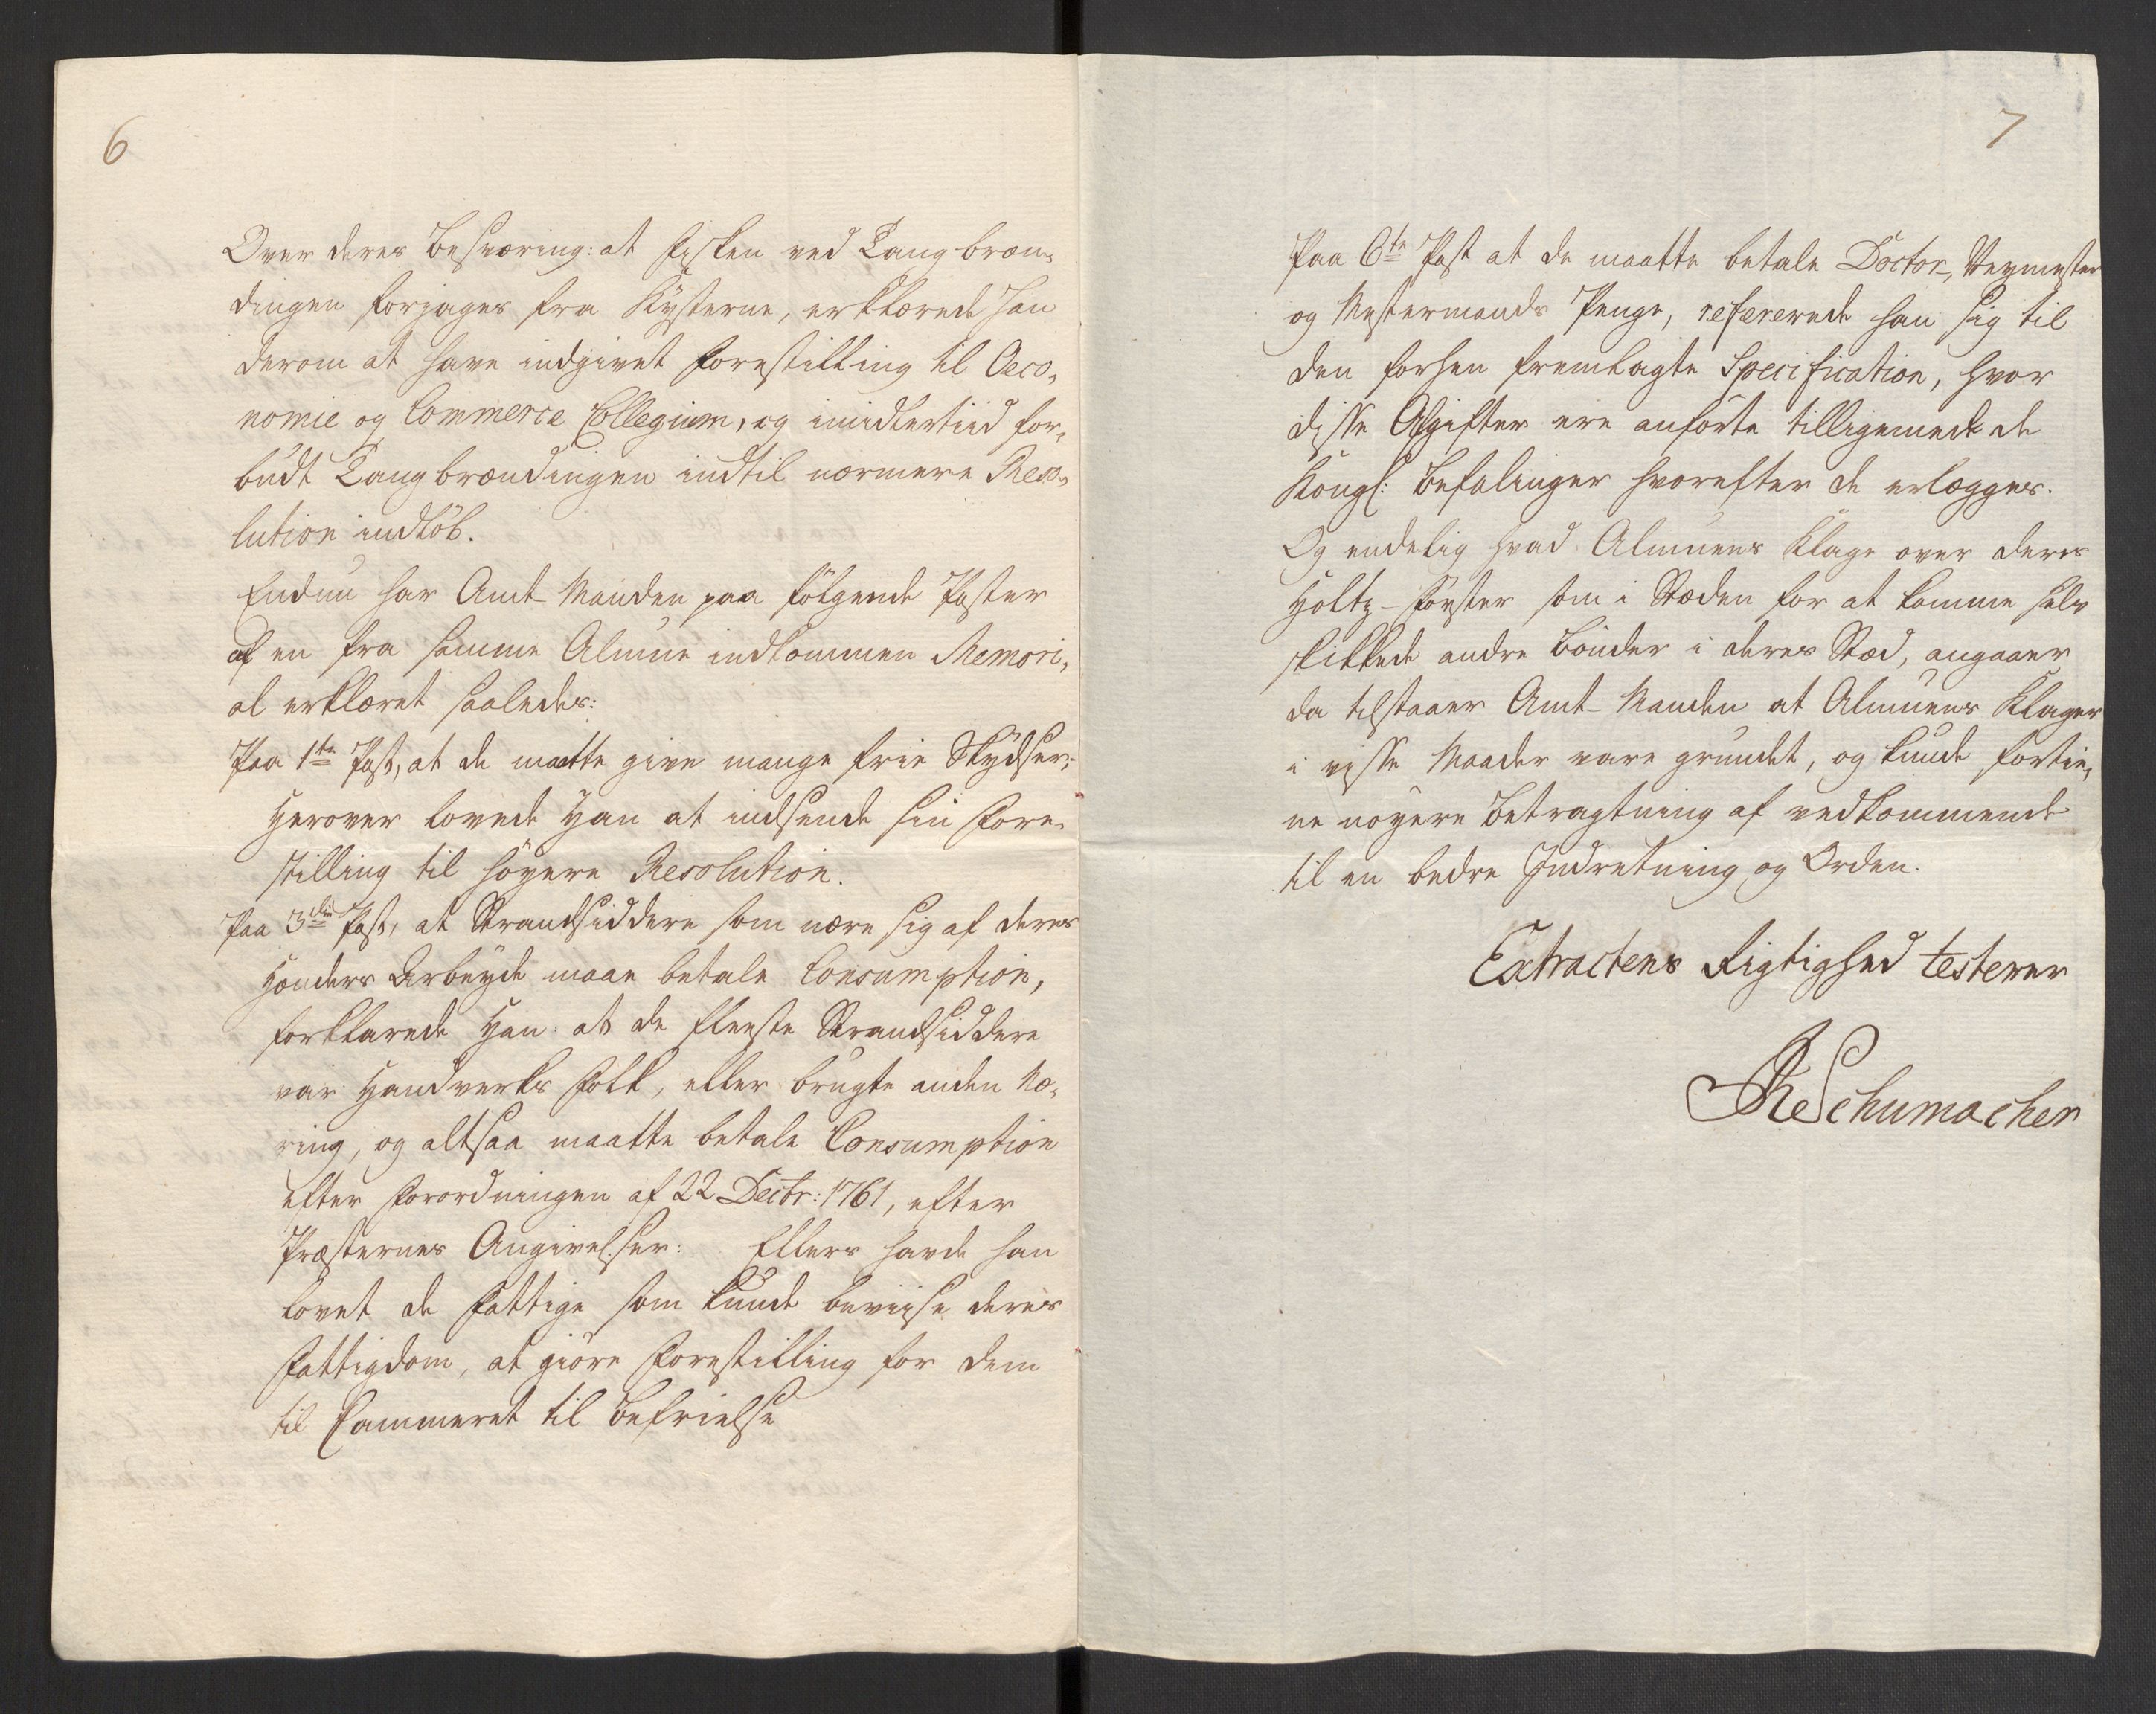 6
Over deres Besværing: at Fisken ved Tangbræn-
dingen forjages fra Kÿsterne, erklærede han
derom at have indgivet Forestilling til Oeco-
nomie og Commerce Collegium, og imidlertiid for-
budt Tangbrændingen indtil nærmere Reso-
lution indløb.
Endnu har Amt-Manden paa følgende Poster
af en fra samme Almue indkommen Memori-
al erklæret saaledes:
Paa 1te Post, at de maatte give mange frie Skÿdser;
Herover lovede Han at indsende sin Fore-
stilling til høyere Resolution.
Paa 3die Post, at Strandsiddere som nære sig af deres
Hænders Arbeyde maae betale Consumption,
forklarede Han at de fleeste Strandsiddere
var Handverks Folk, eller brugte anden Næ-
ring, og altsaa maatte betale Consumption
efter Forordningen af 22 Decbr: 1761, efter
Præsternes Angivelser: Ellers havde han
lovet de Fattige som kunde beviise deres
Fattigdom, at giøre Forestilling for dem
til Cammeret til Befrielse
7
Paa 6te Post at de maatte betale Doctor, Veymester
og Mestermands Penge, refererede han sig til
den forhen fremlagte Specification, hvor
disse Afgifter ere anførte tilligemed de
Kongl: Befalinger hvorefter de erlægges.
Og endelig hvad Almuens Klage over deres
Holtz-Førster som i Stæden for at komme selv
skikkede andre Bønder i deres Stæd, angaaer
da tilstaaer Amt-Manden at Almuens Klager
i visse Maader vare grundet, og kunde fortie-
ne nøyere Betragtning af vedkommende
til en bedre Indretning og Orden.
Extractens Rigtighed testerer
Schumacher